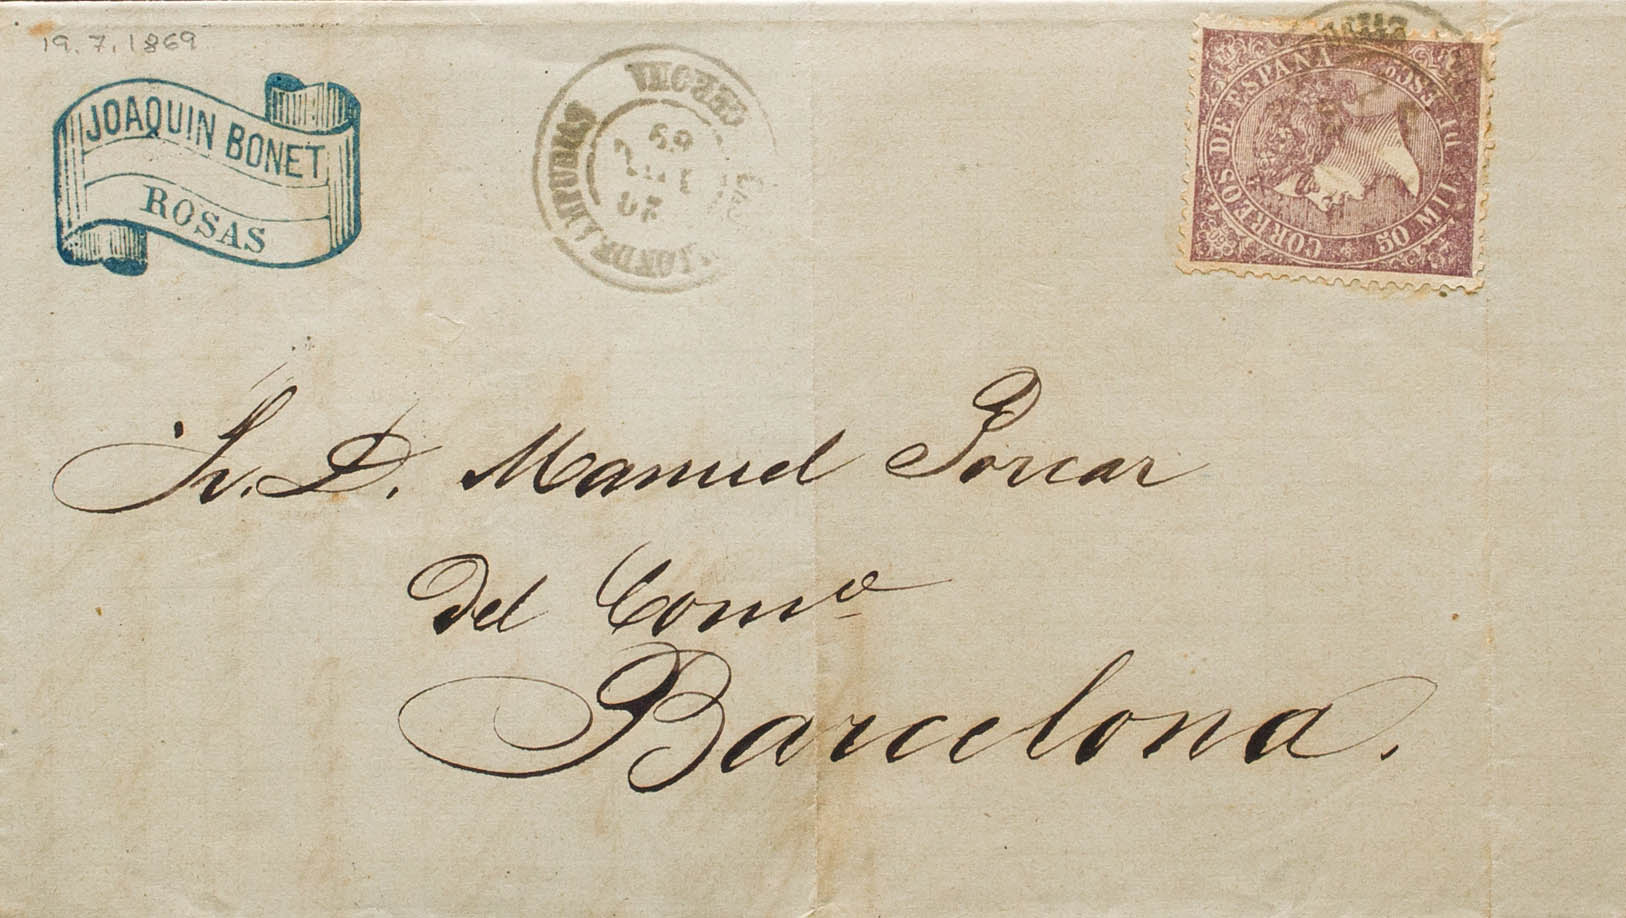 19.7.1869
JOAQUIN BONET
ROSAS
GERONA
20 JUL 69
CORREOS DE ESPAÑA
50 MIL. DE ESCO
Sr. D. Manuel Porcar
del Comº
Barcelona.